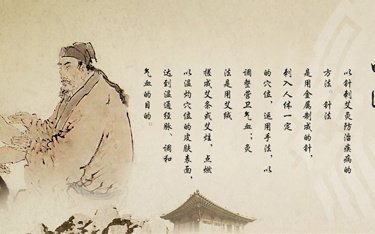 以针刺艾灸防治疾病的
方法 针法
是用金属制成的针，
刺入人体一定
的穴位，运用手法，以
调整营卫气血；灸
法是用艾绒
搓成艾条或艾炷，点燃
以温灼穴位的皮肤表面，
达到温通经脉、调和
气血的目的